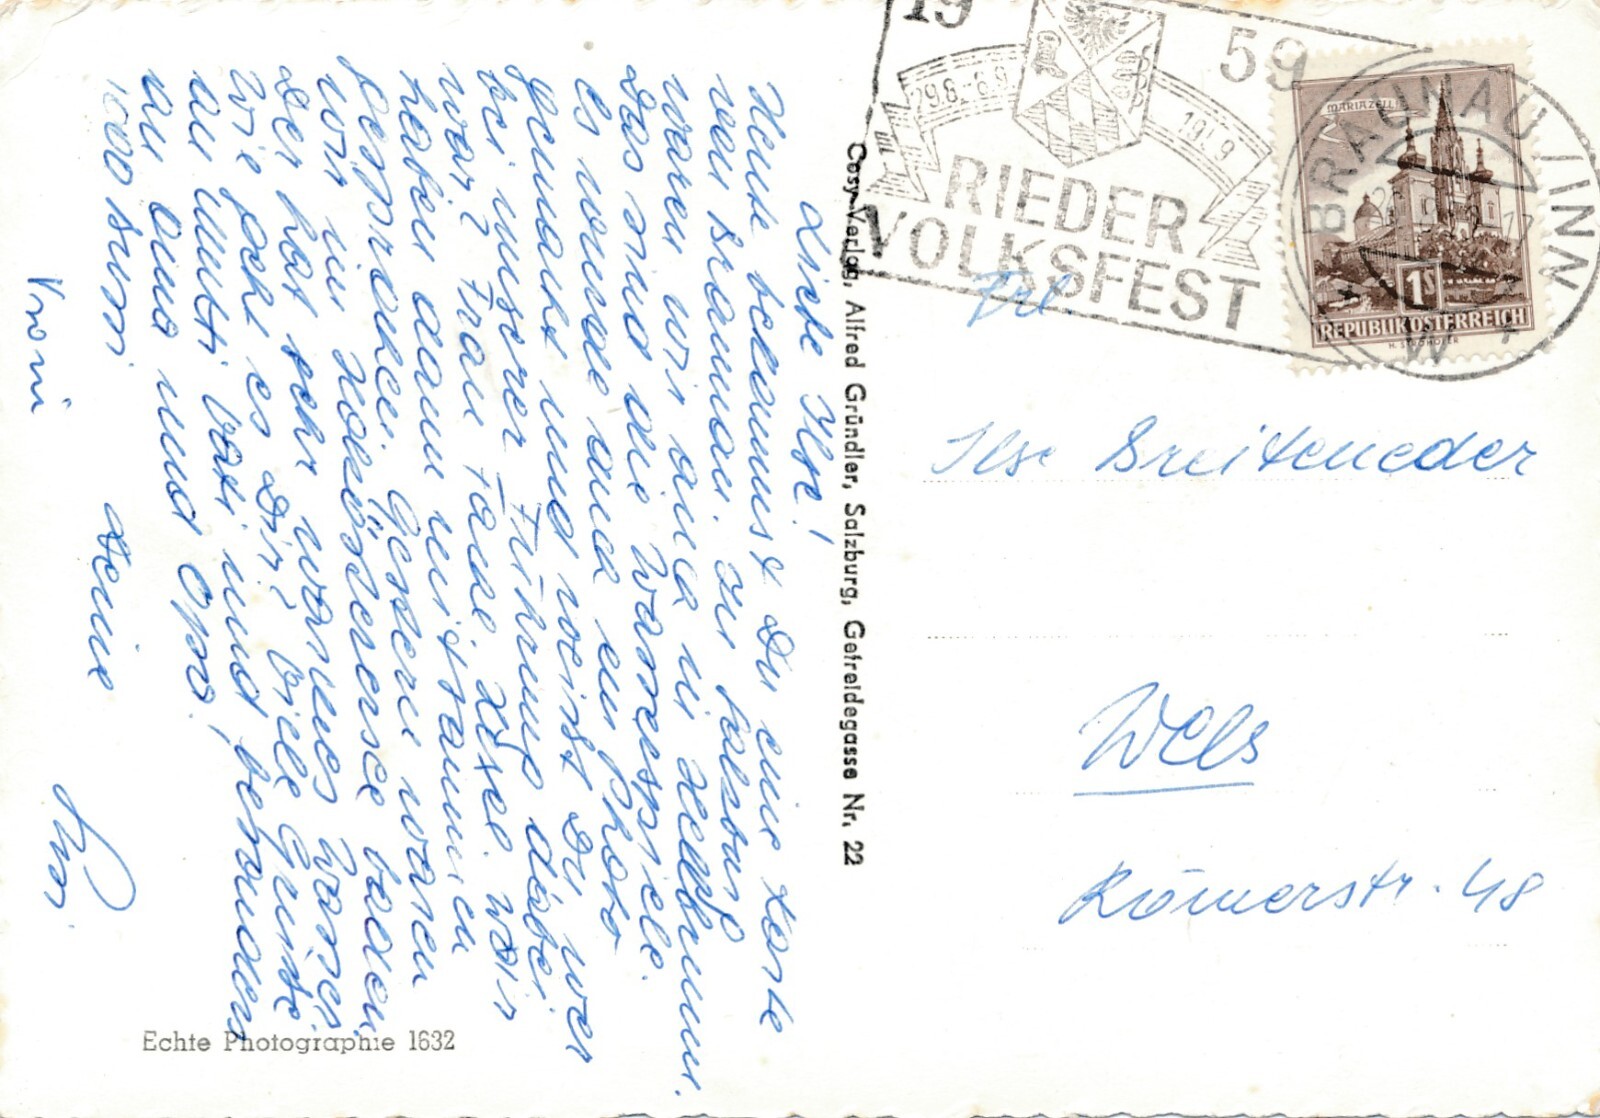 Liebe Ilse!
Heute bekommst Du eine Karte
von Braunau. Zur Salzburg
waren wir auch in Hellbrunn.
Das sind die Wasserspiele.
Es wurde auch ein Photo
gemacht und weißt Du wer
bei unserer Führung dabei
war? Frau Fachl. Ilse. Wir
haben dann mitsammen
gesprochen. Gestern waren
wir im Höllerersee baden.
Der hat sehr warmes Wasser.
Wie geht es Dir? Viele Grüße
an Mutti Vati und besonders
an Oma und Opa!
1000 Bussi
Deine
Susi
Vroni
Echte Photographie 1632
Cosy-Verlag, Alfred Gründler, Salzburg, Getreidegasse Nr. 22
1959
29.8.-6.9. 1959
RIEDER
VOLKSFEST
BRAUNAU INN
MARIAZELL
1S
REPUBLIK ÖSTERREICH
H. STROHOFER
Frl.
Ilse Breiteneder
Wels
Römerstr. 48